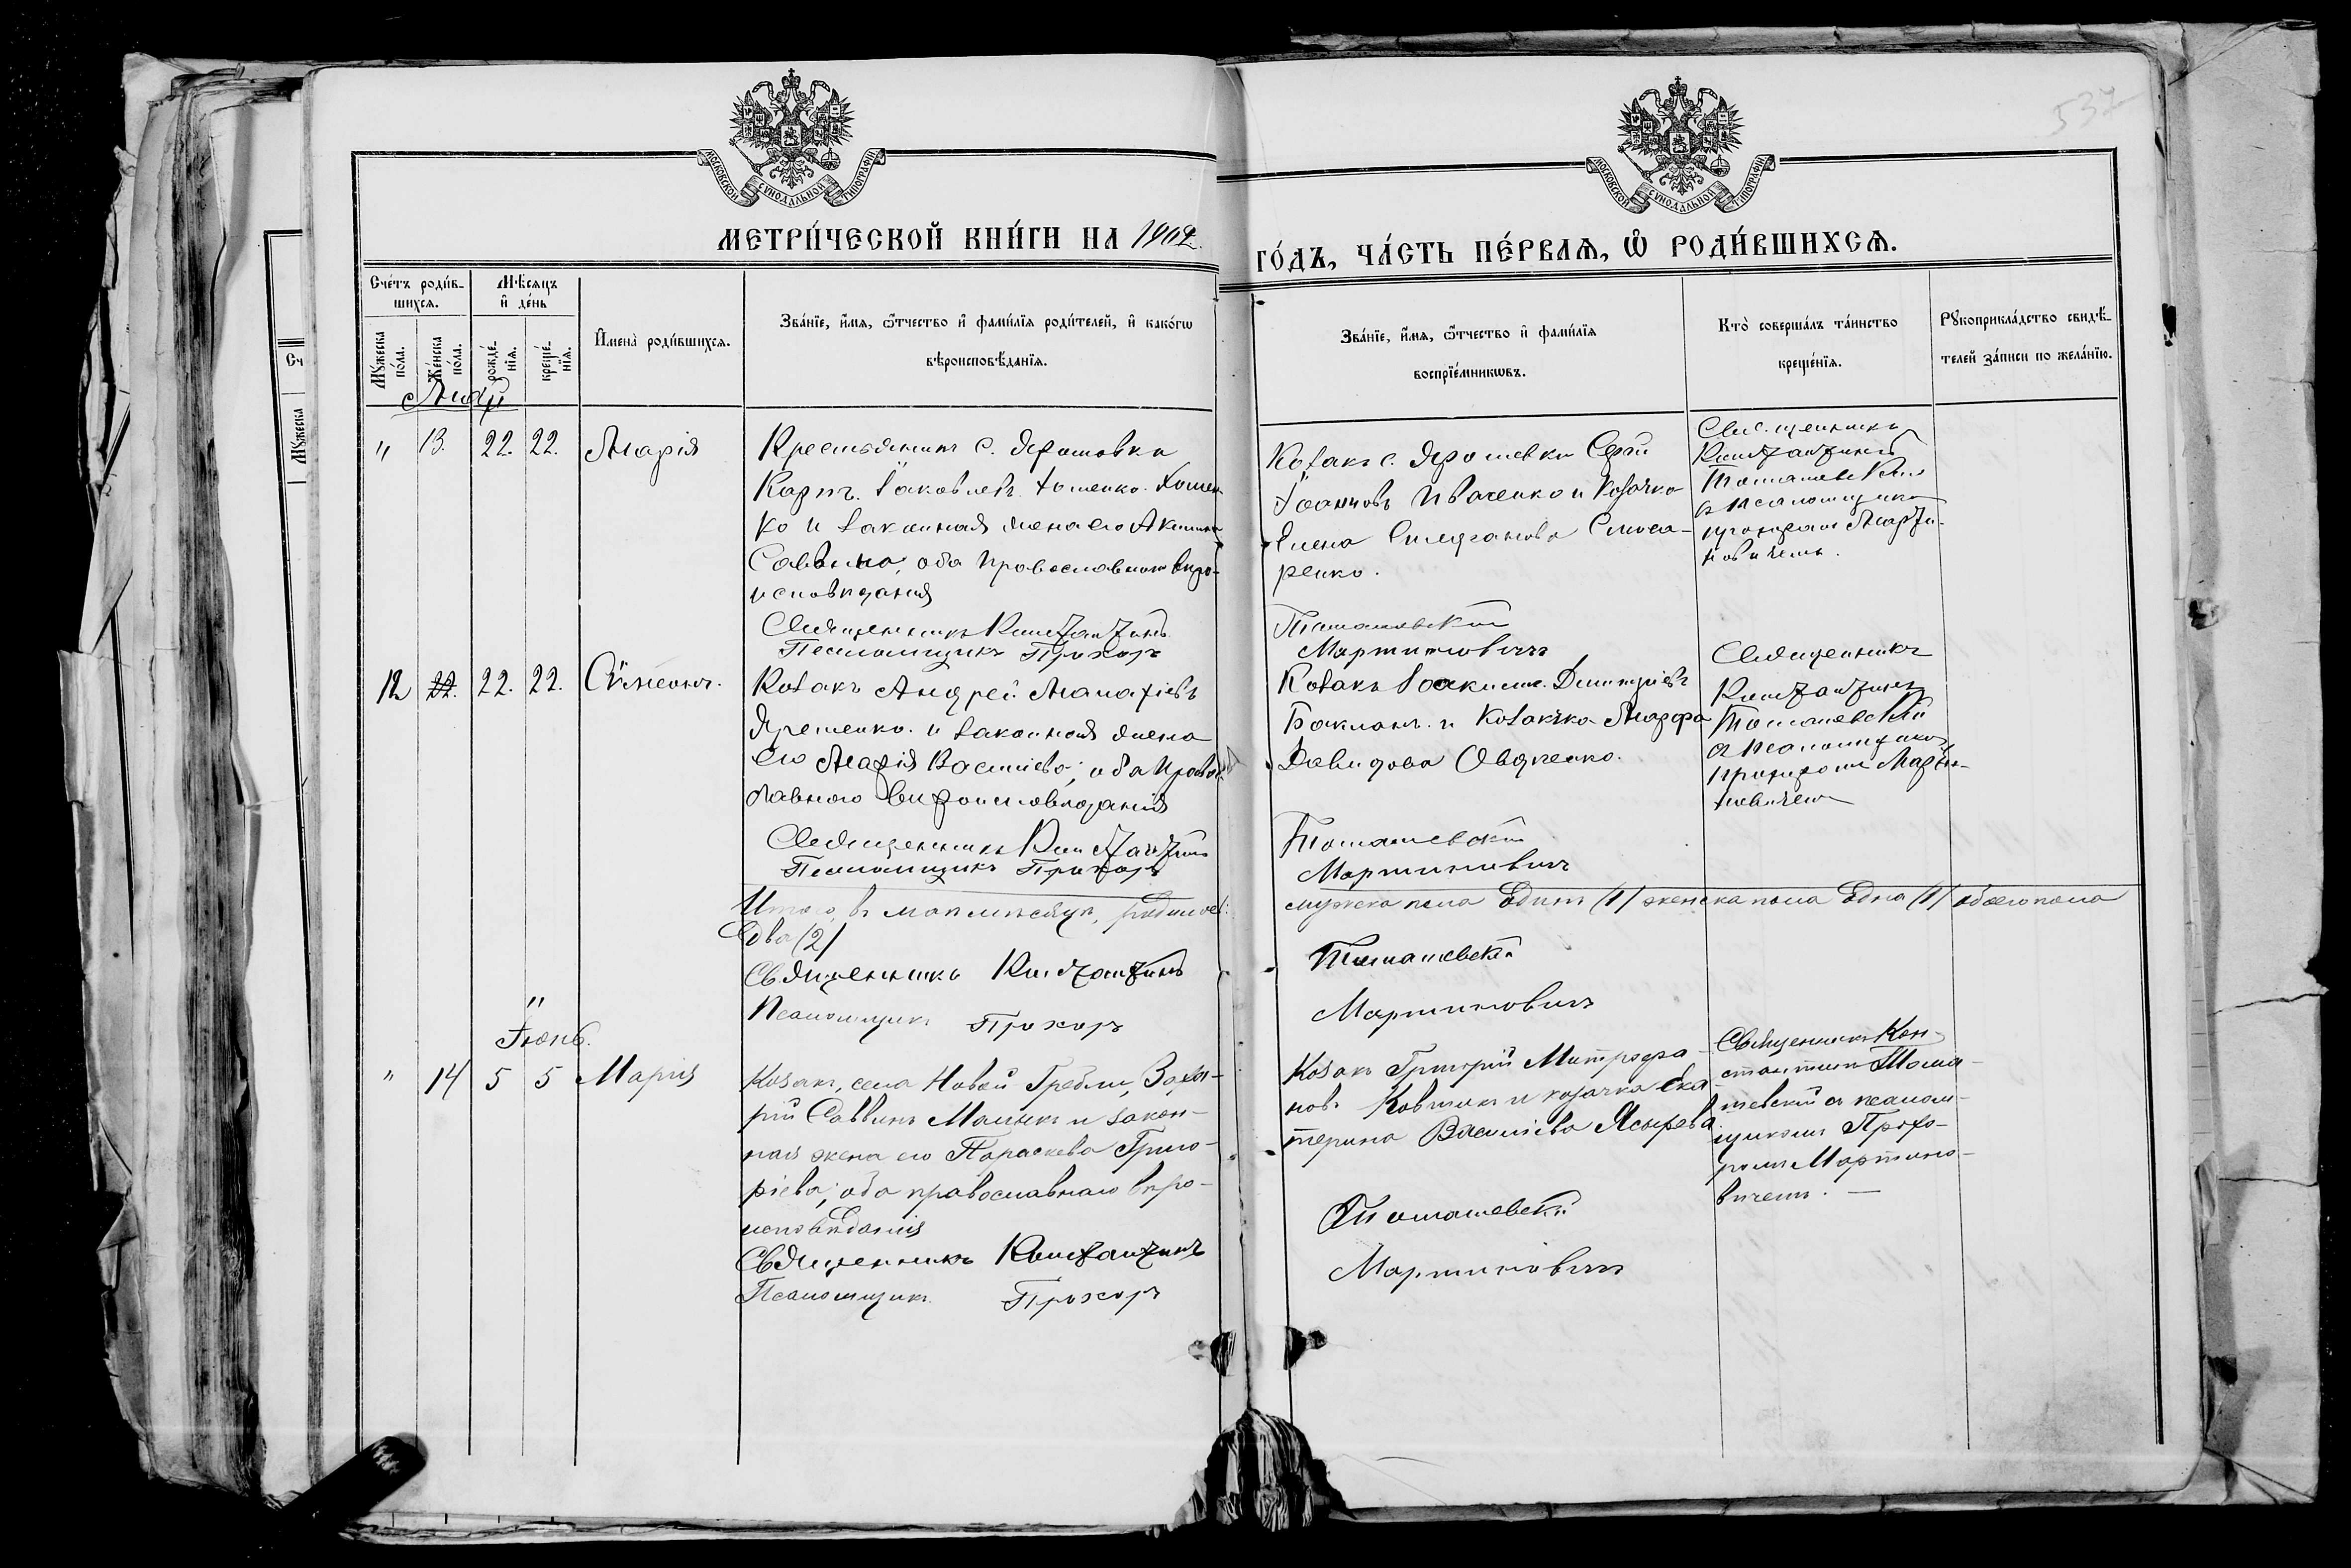 537
МОСКОВСКОЙ СѴНОДАЛЬНОЙ ТИПОГРАФІИ
МОСКОВСКОЙ СѴНОДАЛЬНОЙ ТИПОГРАФІИ
МЕТРИ́ЧЕСКОЙ КНИ́ГИ НА 1902
ГО́ДЪ, ЧА́СТЬ ПЕ́РВАѦ, Ѡ РОДИ́ВШИХСѦ.
Сче́тъ роди́в-
шихсѧ.
Мѣ́сѧцъ
и҆ де́нь
Мꙋ́жеска
по́ла.
Же́нска
по́ла.
рожде́-
нїѧ.
креще́-
нїѧ.
И҆мена̀ роди́вшихсѧ.
Зва́нїе, и҆́мѧ, ѻ҆́тчество и҆ фами́лїѧ роди́телей, и҆ како́гѡ
вѣроисповѣ́данїѧ.
Зва́нїе, и҆́мѧ, ѻ҆́тчество и҆ фами́лїѧ
воспрїе́мникѡвъ.
Кто̀ соверша́лъ та́инство
креще́нїѧ.
Рꙋкоприкла́дство свидѣ́-
телей за́писи по жела́нїю.
Май
" 13. 22. 22. Марія
Крестьянинъ с. Ярошовки
Карпъ Іаковлевъ Хоменко. Хомен
ко и законная жена его Акилина
Саввина, оба православнаго веро-
исповедания
Священникъ Константинъ
Псаломщикъ Прохоръ
Козакъ с. Ярошевки Сергій
Іоанновъ Иваченко и козачка
Елена Слюса-
ренко.
Томашевскій
Мартиновичъ
Священникъ
Константинъ
Томашевскій
с псаломщикомъ
Прохоромъ Марти-
новичемъ.
12 22. 22. 22. Сѵмеонъ.
Козакъ Андрей
Яременко. и законная жена
его Марія Васильева, оба право
славного вероисповедания
Священникъ Константинъ
Псаломщикъ Прохоръ
Козакъ Іоакимъ Димитріевъ
Бакланъ. и Козачка Марфа
Давидова Овдіенко.
Томашевскій
Мартиновичъ
Священникъ
Константинъ
Томашевскій
с псаломщикомъ
Прохоромъ Марти-
новичемъ
Итого, въ маѣ мѣсяцѣ, родилось:
мужеска пола Одинъ (1) женска пола Одна (1) обоего пола
Два (2)
Священникъ Константинъ
Томашевскій
Псаломщикъ Прохоръ
Мартиновичъ
Іюнь.
" 14 5 5 Марія
Козакъ, села Новой Гребли, Заха-
рій Саввинъ Малыкъ и закон-
ная жена его Параскева Григо-
ріева; оба православнаго вѣро-
исповѣданія
Священникъ Константинъ
Псаломщикъ Прохоръ
Козакъ Григорій Митрофа-
новъ Ковтикъ и козачка Ека
терина Васильева
Томашевскій
Мартиновичъ
Священникъ Кон-
стантинъ Тома-
шевскій съ псалом-
щикомъ Прохо-
ромъ Мартино-
вичемъ. —